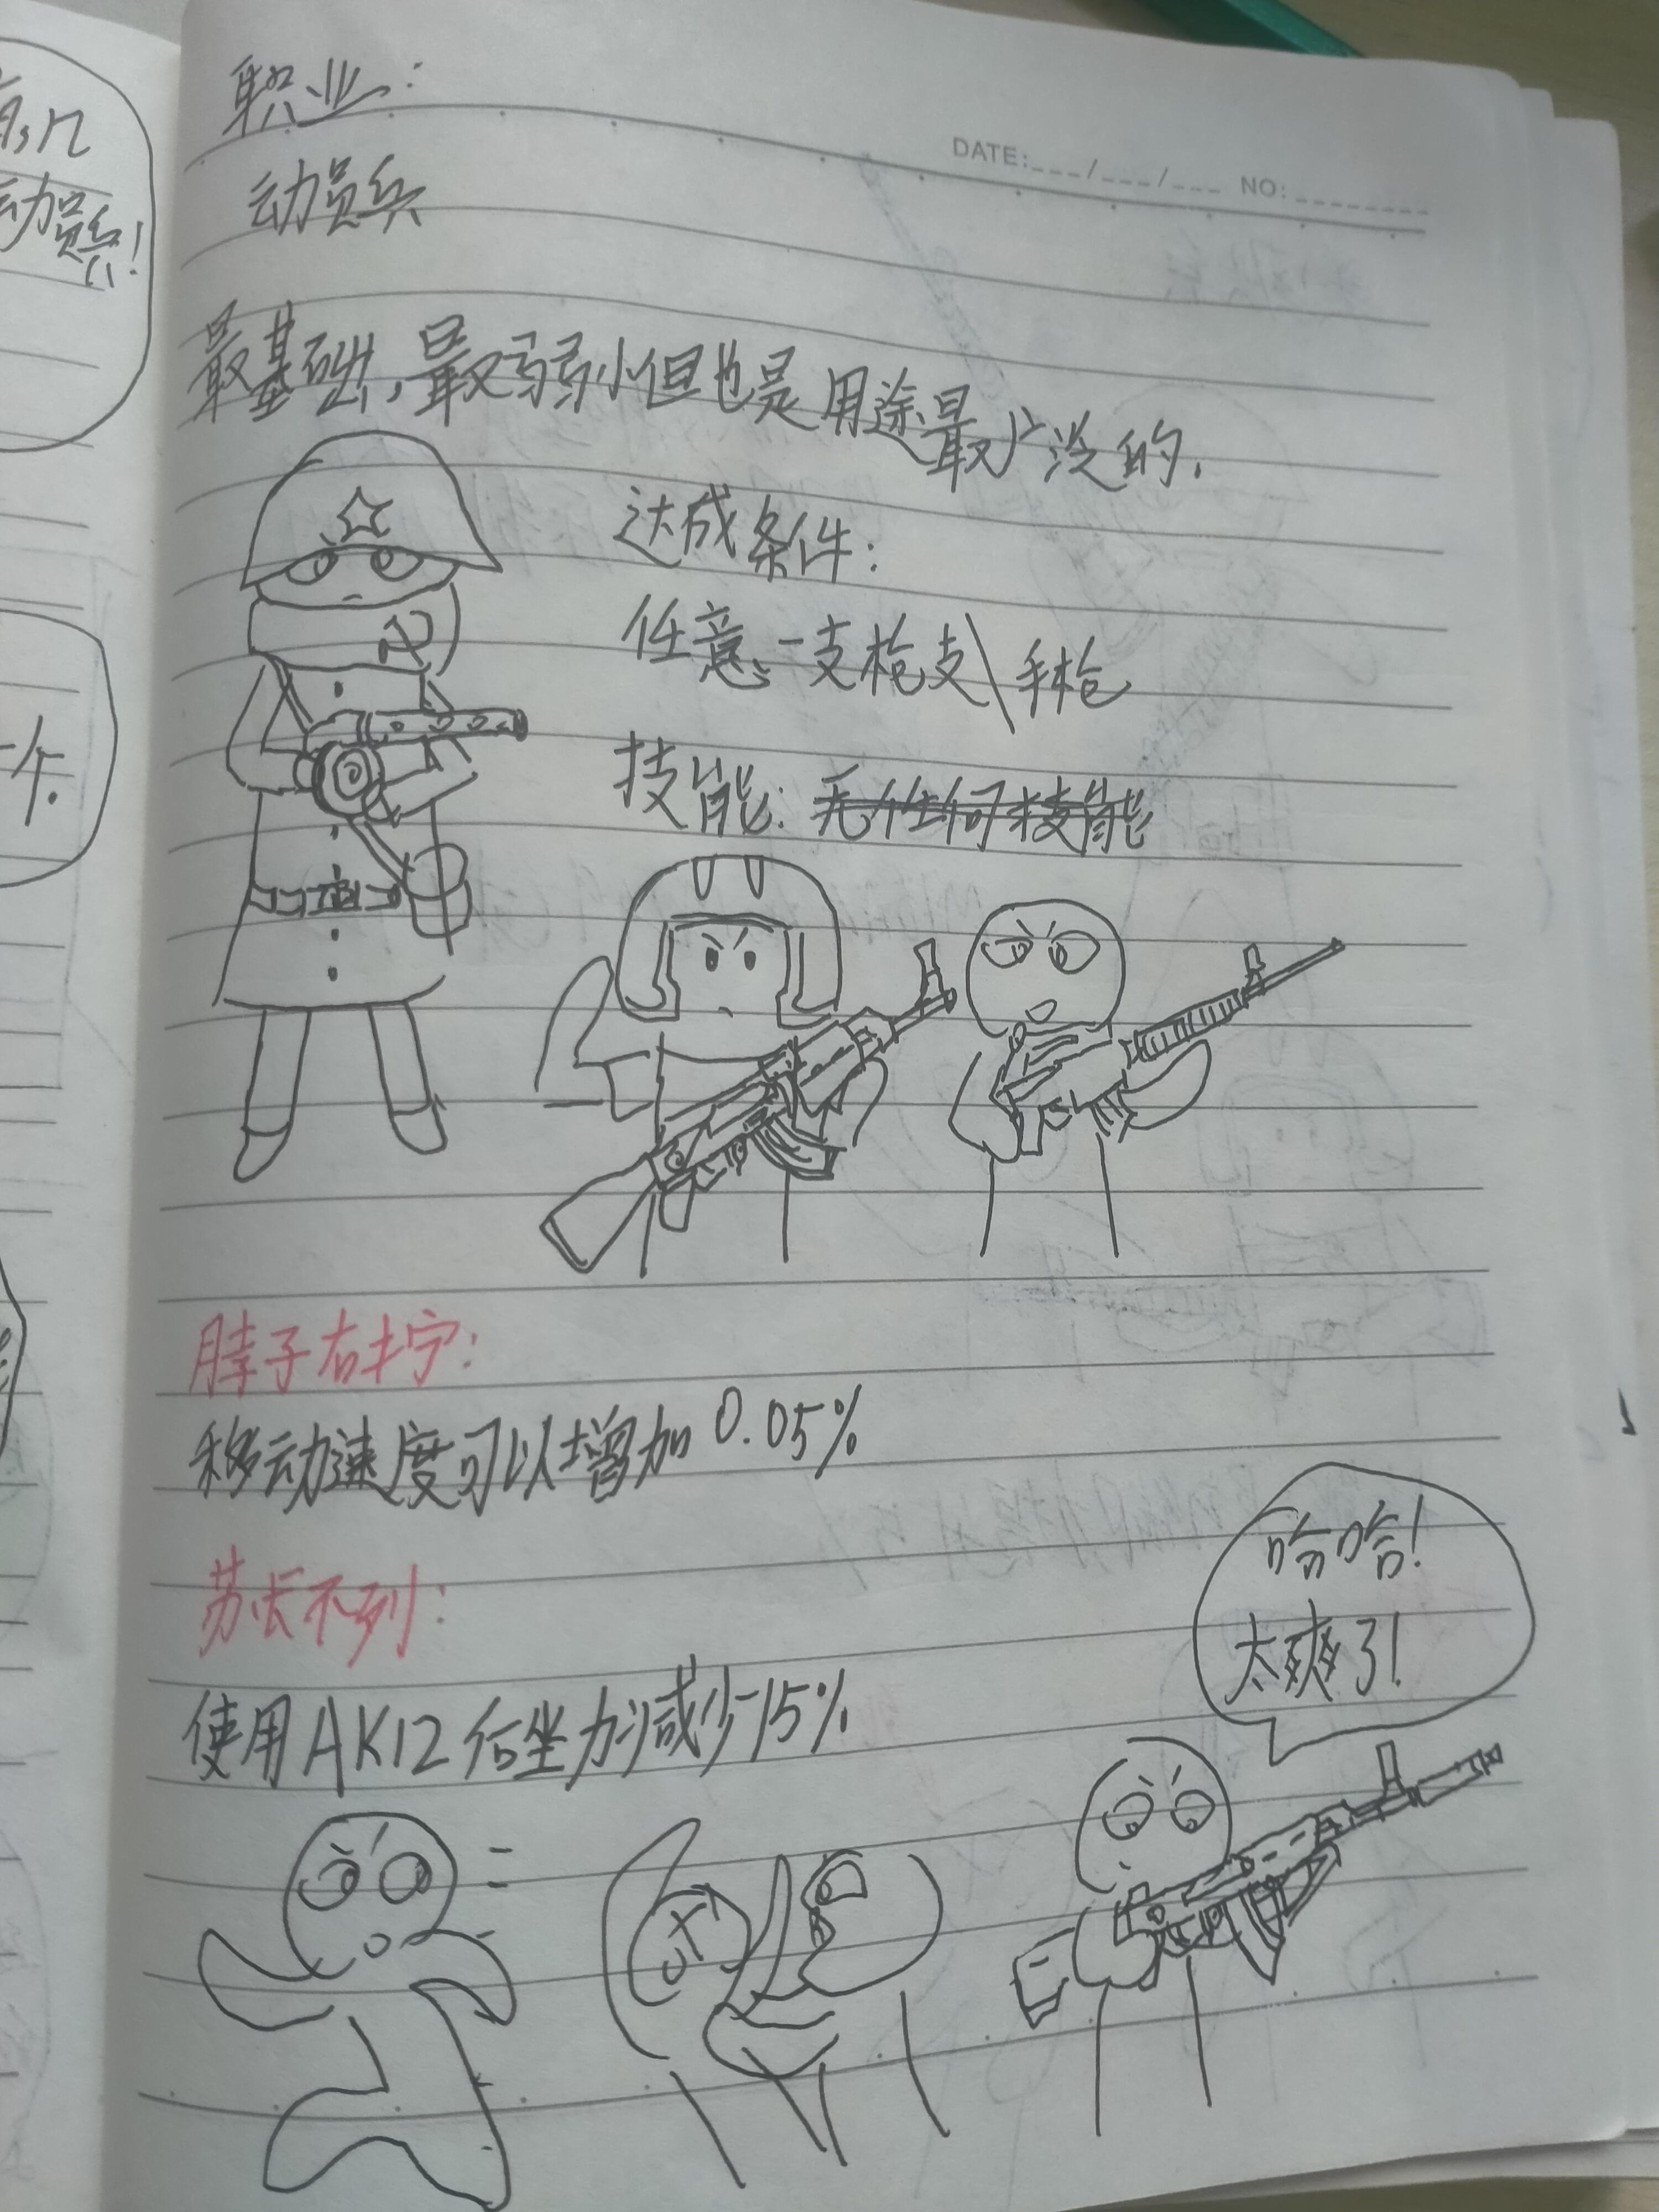 动员兵!
职业:
DATE:___/___/___ NO:________
动员兵
最基础,最弱小但也是用途最广泛的.
达成条件:
任意一支枪支\手枪
技能:无任何技能
脖子右拧:
移动速度可以增加0.05%
苏长不列:
使用AK12后坐力减少15%
哈哈!
太爽了!